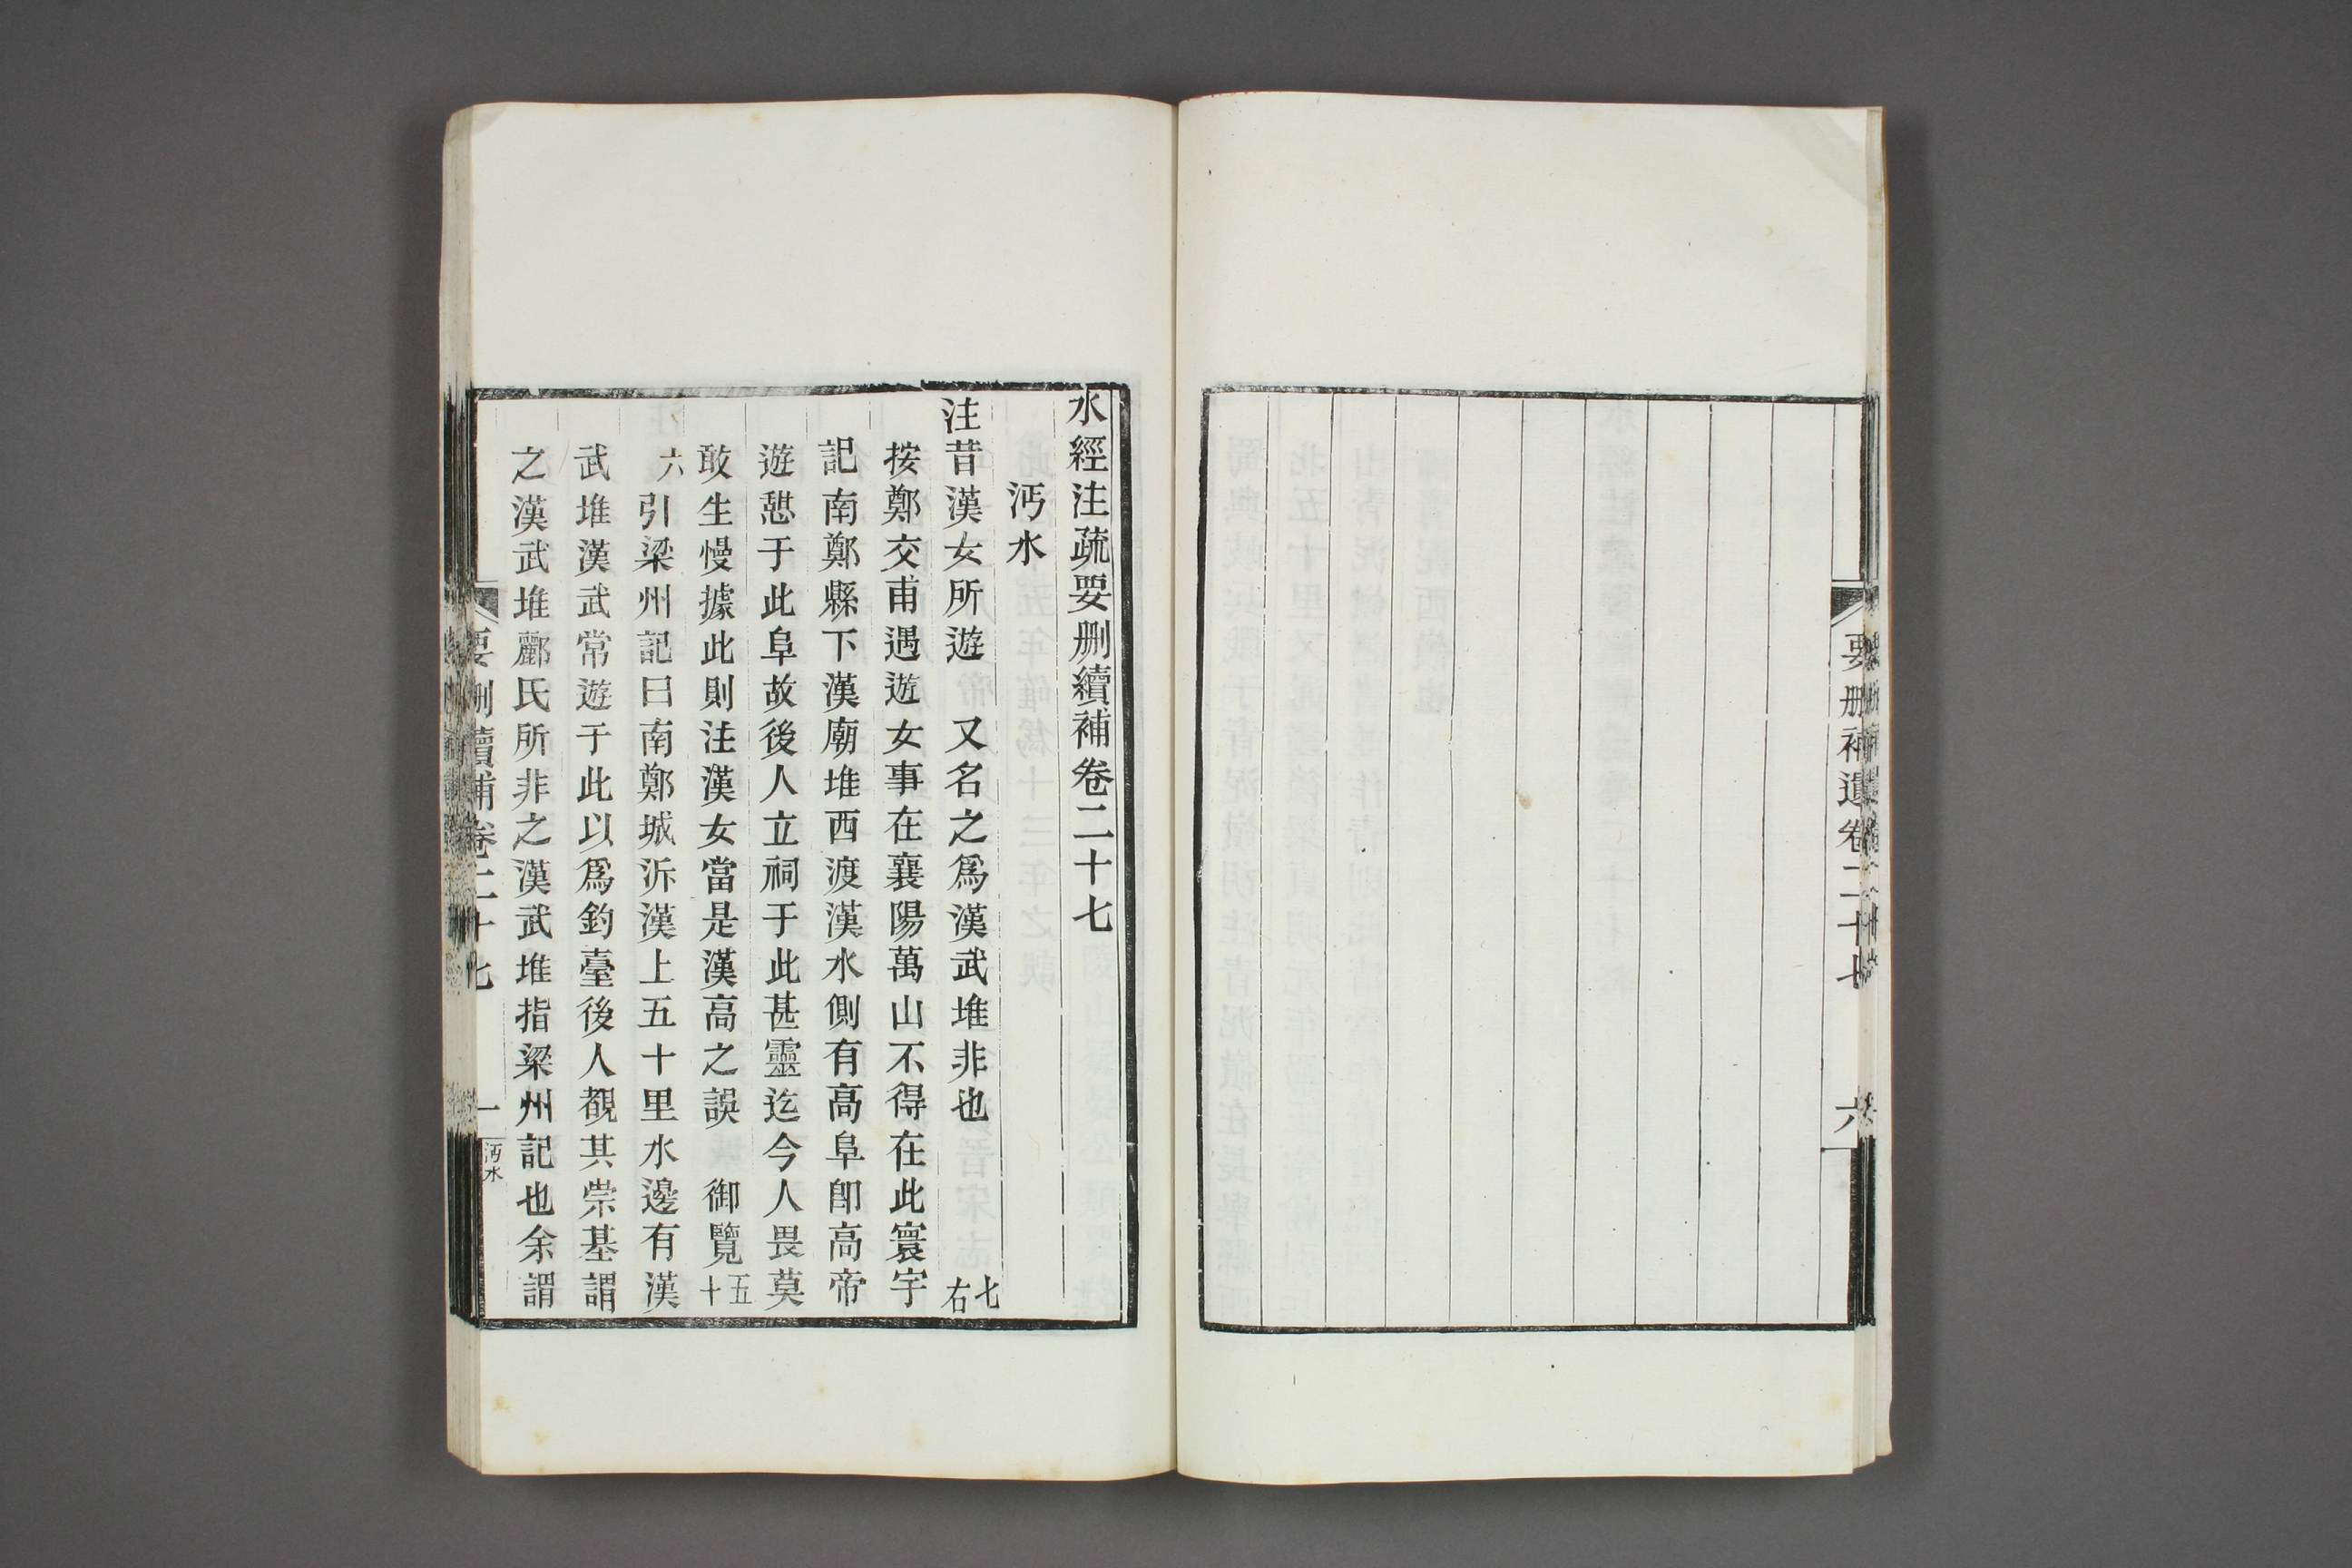 要刪補遺卷二十七
六
水經注疏要刪續補卷二十七
沔水
注昔漢女所遊　又名之爲漢武堆非也 七右
按鄭交甫遇遊女事在襄陽萬山不得在此寰宇
記南鄭縣下漢廟堆西渡漢水側有高阜卽高帝
遊憇于此阜故後人立祠于此甚靈迄今人畏莫
敢生慢據此則注漢女當是漢高之誤　御覽五十
六引梁州記曰南鄭城泝漢上五十里水邊有漢
武堆漢武常遊于此以爲釣臺後人覩其崇基謂
之漢武堆酈氏所非之漢武堆指梁州記也余謂
要刪續補卷二十七
一
沔水